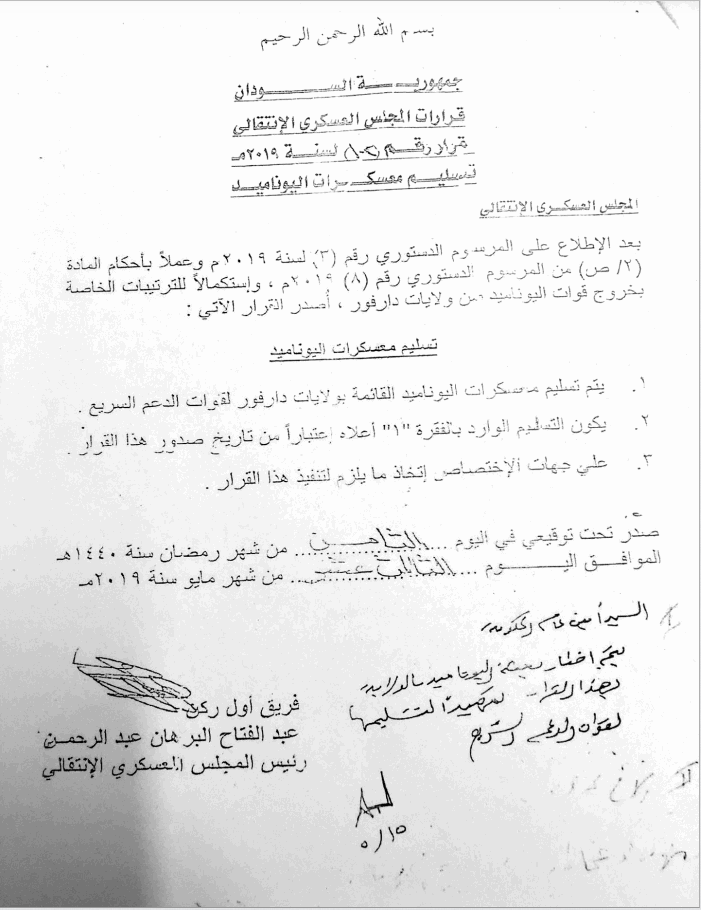 بسم الله الرحمن الرحيم
جمهوريـــة الســـودان
قرارات المجلس العسكري الإنتقالي
قرار رقم (١٠٢) لسنة ٢٠١٩مـ
تسليم معسكرات اليوناميد
المجلس العسكري الإنتقالي
بعد الإطلاع على المرسوم الدستوري رقم (٣) لسنة ٢٠١٩م وعملاً بأحكام المادة
(٢/ ص) من المرسوم الدستوري رقم (٨) ٢٠١٩م ، وإستكمالاً للترتيبات الخاصة
بخروج قوات اليوناميد من ولايات دارفور ، أصدر القرار الآتي :
تسليم معسكرات اليوناميد
١. يتم تسليم معسكرات اليوناميد القائمة بولايات دارفور لقوات الدعم السريع .
٢. يكون التسليم الوارد بالفقرة "١" أعلاه إعتباراً من تاريخ صدور هذا القرار .
٣. علي جهات الإختصاص إتخاذ ما يلزم لتنفيذ هذا القرار .
صدر تحت توقيعي في اليوم ....الثامن.... من شهر رمضان سنة ١٤٤٠هـ
الموافــق اليـــوم ....الثالث عشر.... من شهر مايو سنة ٢٠١٩مـ
السيد أمين عام الحكومة
يتم اخطار بعثة اليوناميد بالولاية
بهذا القرار تمهيداً لتسليمها
لقوات الدعم السريع
فريق أول ركن
عبد الفتاح البرهان عبد الرحمن
رئيس المجلس العسكري الإنتقالي
٥/١٥